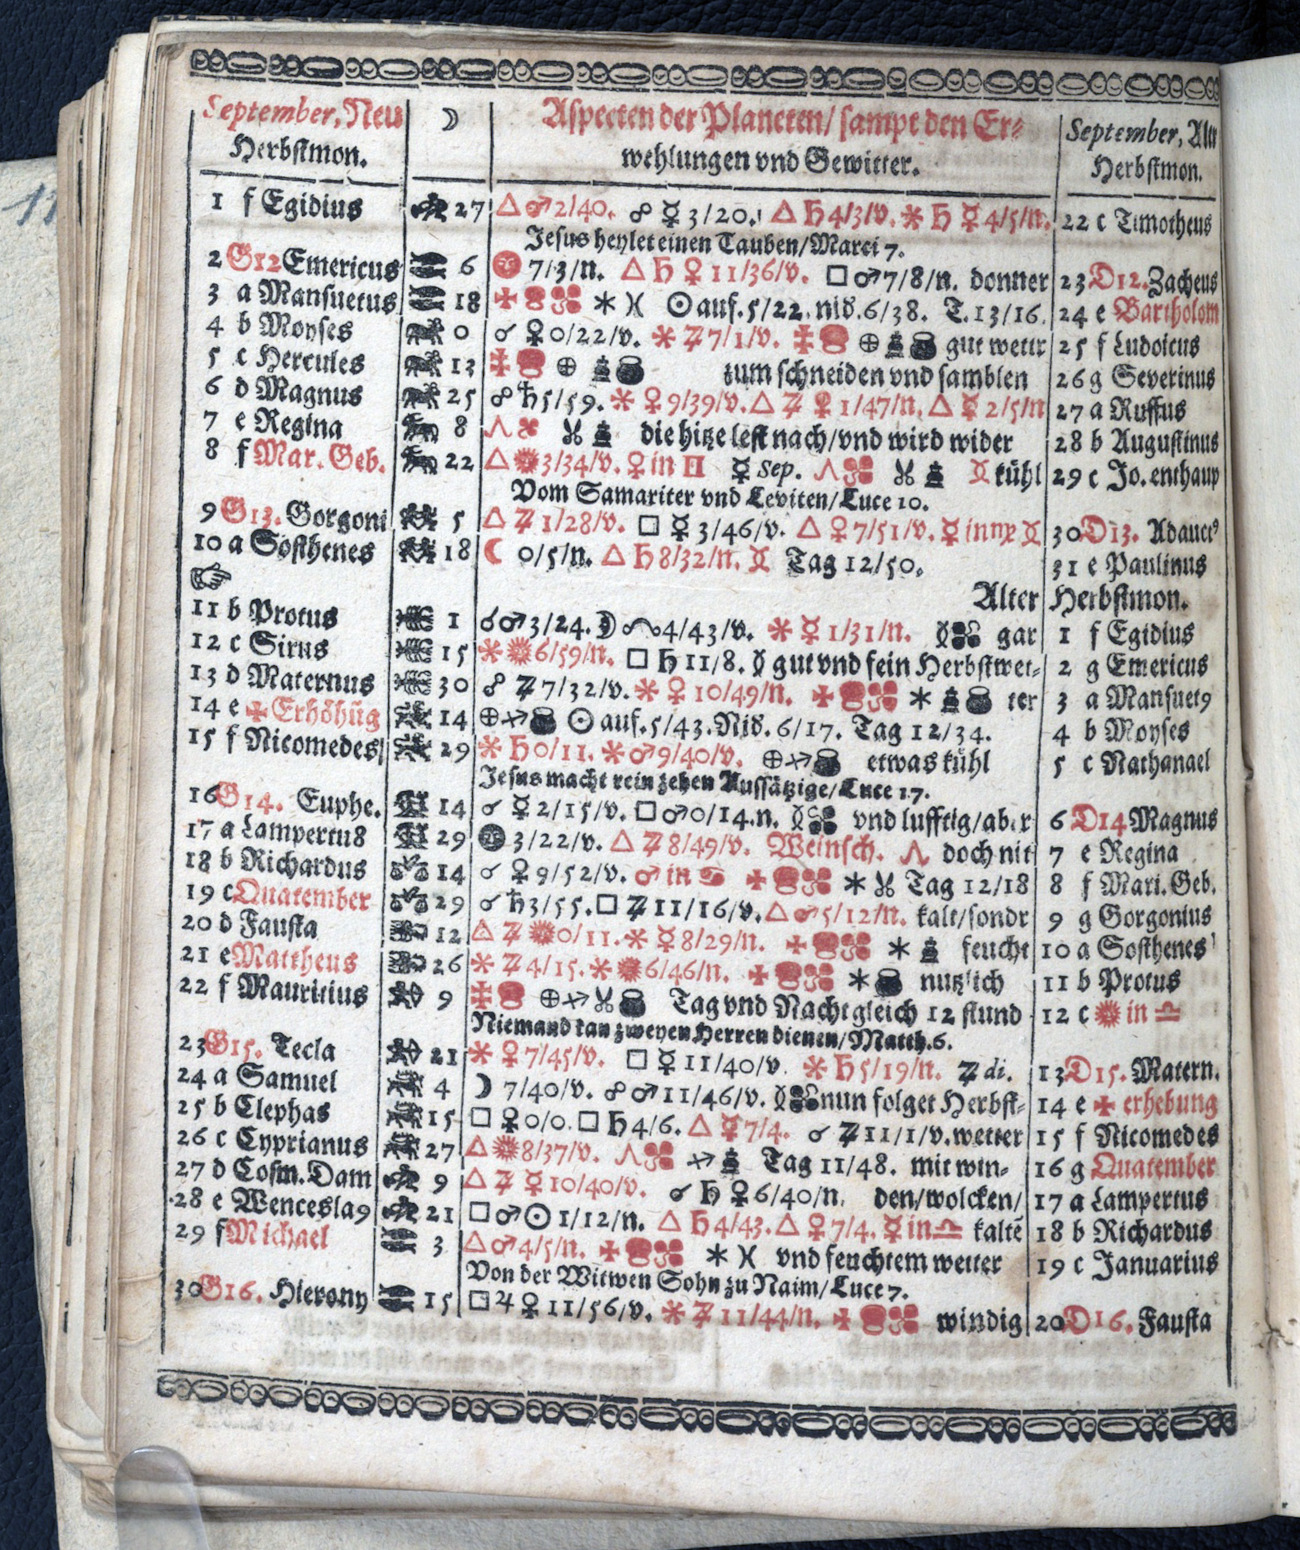 September, Neu ☽ Aspecten der Planeten/ sampt den Er- September, Alt
Herbstmon. wehlungen vnd Gewitter. Herbstmon.
1 f Egidius 27 △ ♂ 2/40. ☍ ☿ 3/20. △ ♄ 4/3/v. ✱ ♄ ☿ 4/5/n. 22 c Timotheus
Jesus heylet einen Tauben/Marci 7.
2 G12 Emericus 6 7/3/n. △ ♄ ♀ 11/36/v. □ ♂ 7/8/n. donner 23 D12. Zacheus
3 a Mansuetus 18 ✱ ♓ ☉ auf. 5/22. nid. 6/38. T. 13/16. 24 e Bartholom
4 b Moyses 0 ☌ ♀ 0/22/v. ✱ ♃ 7/1/v. ⊕ gut wettr 25 f Ludoicus
5 c Hercules 13 ⊕ zum schneiden vnd samblen 26 g Severinus
6 d Magnus 25 ☍ ♄ 5/59. ✱ ♀ 9/39/v. △ ♃ ♀ 1/47/n. △ ☿ 2/5/n 27 a Ruffus
7 e Regina 8 die hitze lest nach/vnd wird wider 28 b Augustinus
8 f Mar. Geb. 22 △ 3/34/v. ♀ in ♊ ☿ Sep. kühl 29 c Jo. enthaup
Vom Samariter vnd Leviten/Luce 10.
9 G13. Gorgoni 5 △ ♃ 1/28/v. □ ☿ 3/46/v. △ ♀ 7/51/v. ☿ in ♍ 30 D13. Adauct⁹
10 a Sosthenes 18 ☾ 0/5/n. △ ♄ 8/32/n. Tag 12/50. 31 e Paulinus
☞ Alter Herbstmon.
11 b Protus 1 ☌ ♂ 3/24. ☽ 4/43/v. ✱ ☿ 1/31/n. gar 1 f Egidius
12 c Sirus 15 ✱ 6/59/n. □ ♄ 11/8. gut vnd fein Herbstwet- 2 g Emericus
13 d Maternus 30 ☍ ♃ 7/32/v. ✱ ♀ 10/49/n. ✱ ter 3 a Mansuet⁹
14 e Erhöhũg 14 ⊕ ♐ ☉ auf. 5/43. Nid. 6/17. Tag 12/34. 4 b Moyses
15 f Nicomedes 29 ✱ ♄ 0/11. ✱ ♂ 9/40/v. ⊕ ♐ etwas kühl 5 c Nathanael
Jesus macht rein zehen Aussätzige/Luce 17.
16 G14. Euphe. 14 ☌ ☿ 2/15/v. □ ♂ 0/14.n. vnd lufftig/aber 6 D14 Magnus
17 a Lampertus 29 3/22/v. △ ♃ 8/49/v. Weinsch. doch nit 7 e Regina
18 b Richardus 14 ☌ ♀ 9/52/v. ♂ in ♋ ✱ Tag 12/18 8 f Mari. Geb.
19 c Quatember 29 ☌ ♄ 3/55. □ ♃ 11/16/v. △ ♂ 5/12/n. kalt/sondr 9 g Gorgonius
20 d Fausta 12 △ ♃ 0/11. ✱ ☿ 8/29/n. ✱ feucht 10 a Sosthenes
21 e Mattheus 26 ✱ ♃ 4/15. ✱ 6/46/n. ✱ nutzlich 11 b Protus
22 f Mauritius 9 ⊕ ♐ Tag vnd Nacht gleich 12 stund 12 c in ♎
Niemand kan zweyen Herren dienen/Matth. 6.
23 G15. Tecla 21 ✱ ♀ 7/45/v. □ ☿ 11/40/v. ✱ ♄ 5/19/n. ♃ di. 13 D15. Matern.
24 a Samuel 4 ☽ 7/40/v. ☍ ♂ 11/46/v. nun folget Herbst- 14 e erhebung
25 b Clephas 15 □ ♀ 0/0. □ ♄ 4/6. △ ☿ 7/4. ☌ ♃ 11/1/v. wetter 15 f Nicomedes
26 c Cyprianus 27 △ 8/37/v. ♐ Tag 11/48. mit win- 16 g Quatember
27 d Cosm. Dam 9 △ ♃ ☿ 10/40/v. ☌ ♄ ♀ 6/40/n. den/wolcken/ 17 a Lampertus
28 e Wencesla⁹ 21 □ ♂ ☉ 1/12/n. △ ♄ 4/43. △ ♀ 7/4. ☿ in ♎ kaltẽ 18 b Richardus
29 f Michael 3 △ ♂ 4/5/n. ✱ ♓ vnd feuchtem wetter 19 c Januarius
Von der Witwen Sohn zu Naim/Luce 7.
30 G16. Hierony 15 □ ♃ ♀ 11/56/v. ✱ ♃ 11/44/n. windig 20 D16. Fausta